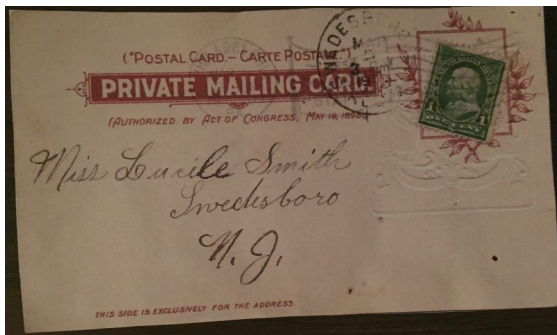 ("POSTAL CARD.– CARTE POSTALE.")
PRIVATE MAILING CARD.
(AUTHORIZED BY ACT OF CONGRESS, MAY 19, 1898.)
1 1
ONE CENT
Miss Lucile Smith
Swedesboro
N. J.
THIS SIDE IS EXCLUSIVELY FOR THE ADDRESS.